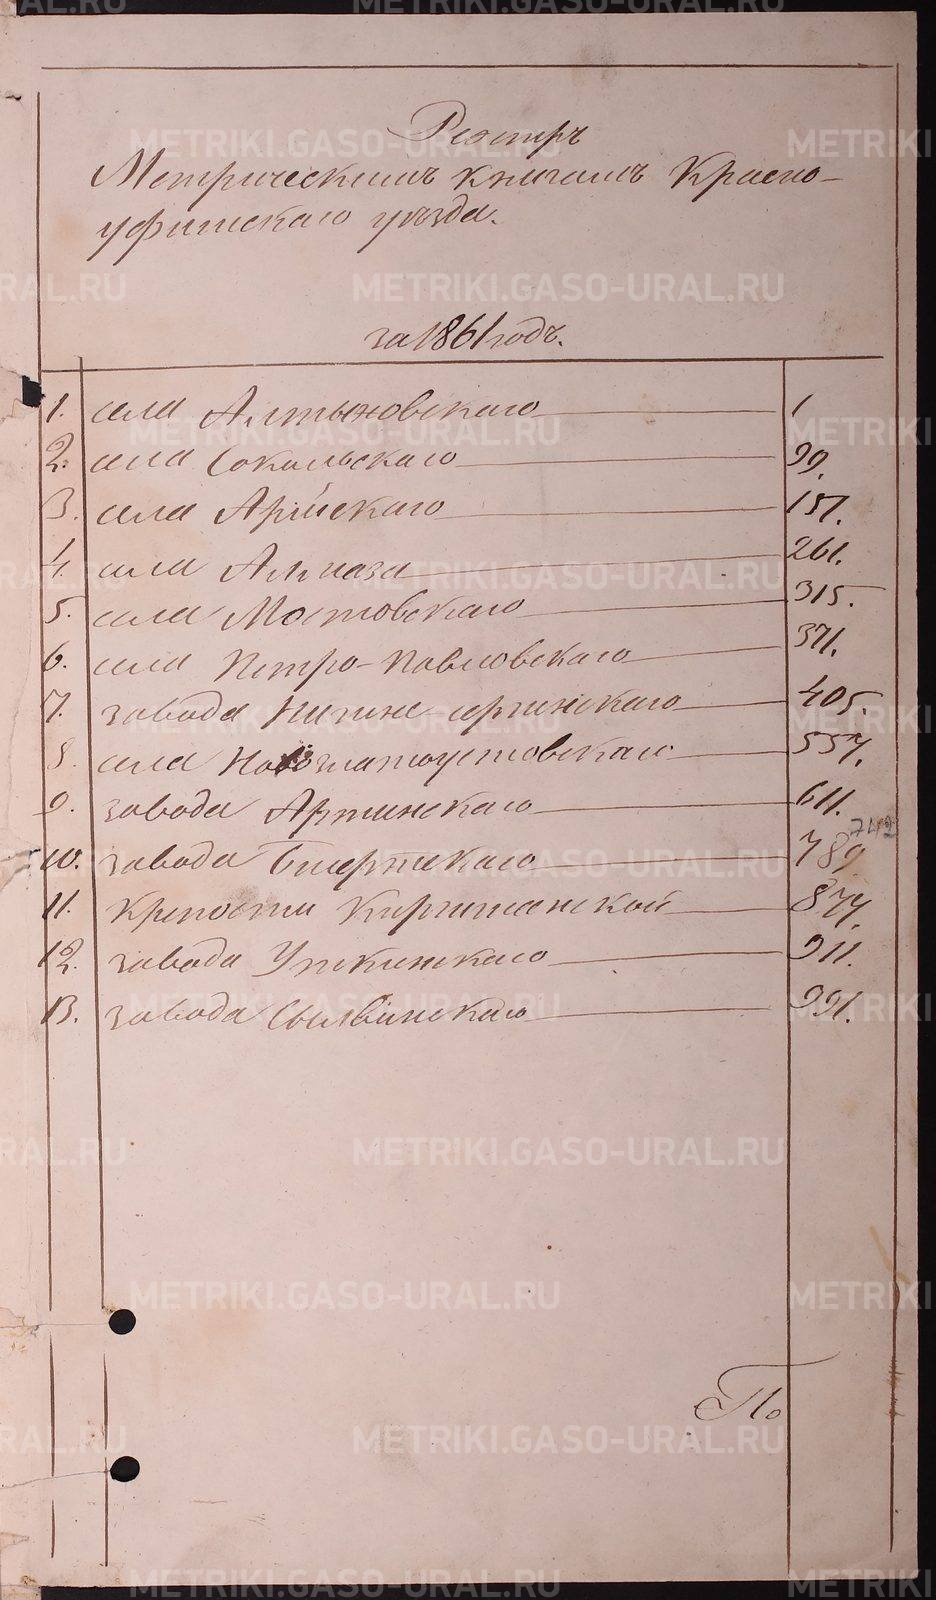 Реэстръ
Метрическимъ книгамъ Красно-
уфимскаго уѣзда.
за 1861 годъ.
1. села Алтыновскаго 1
2. села Сокольскаго 99.
3. села Арійскаго 151.
4. села Алмаза 261.
5. села Мостовскаго 315.
6. села Петро-Павловскаго 371.
7. завода Нижне-сергинскаго 405.
8. села Новозлатоустовскаго 557.
9. завода Артинскаго 611.
742
10. завода Бисертскаго 789
11. Крѣпости Киргишанской 877.
12. завода Уткинскаго 911.
13. завода Сылвинскаго 991.
По
METRIKI.GASO-URAL.RU